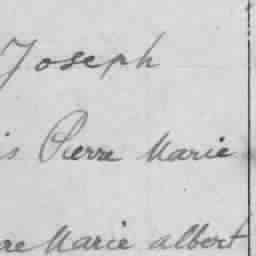 Joseph
is Pierre Marie
re Marie albert